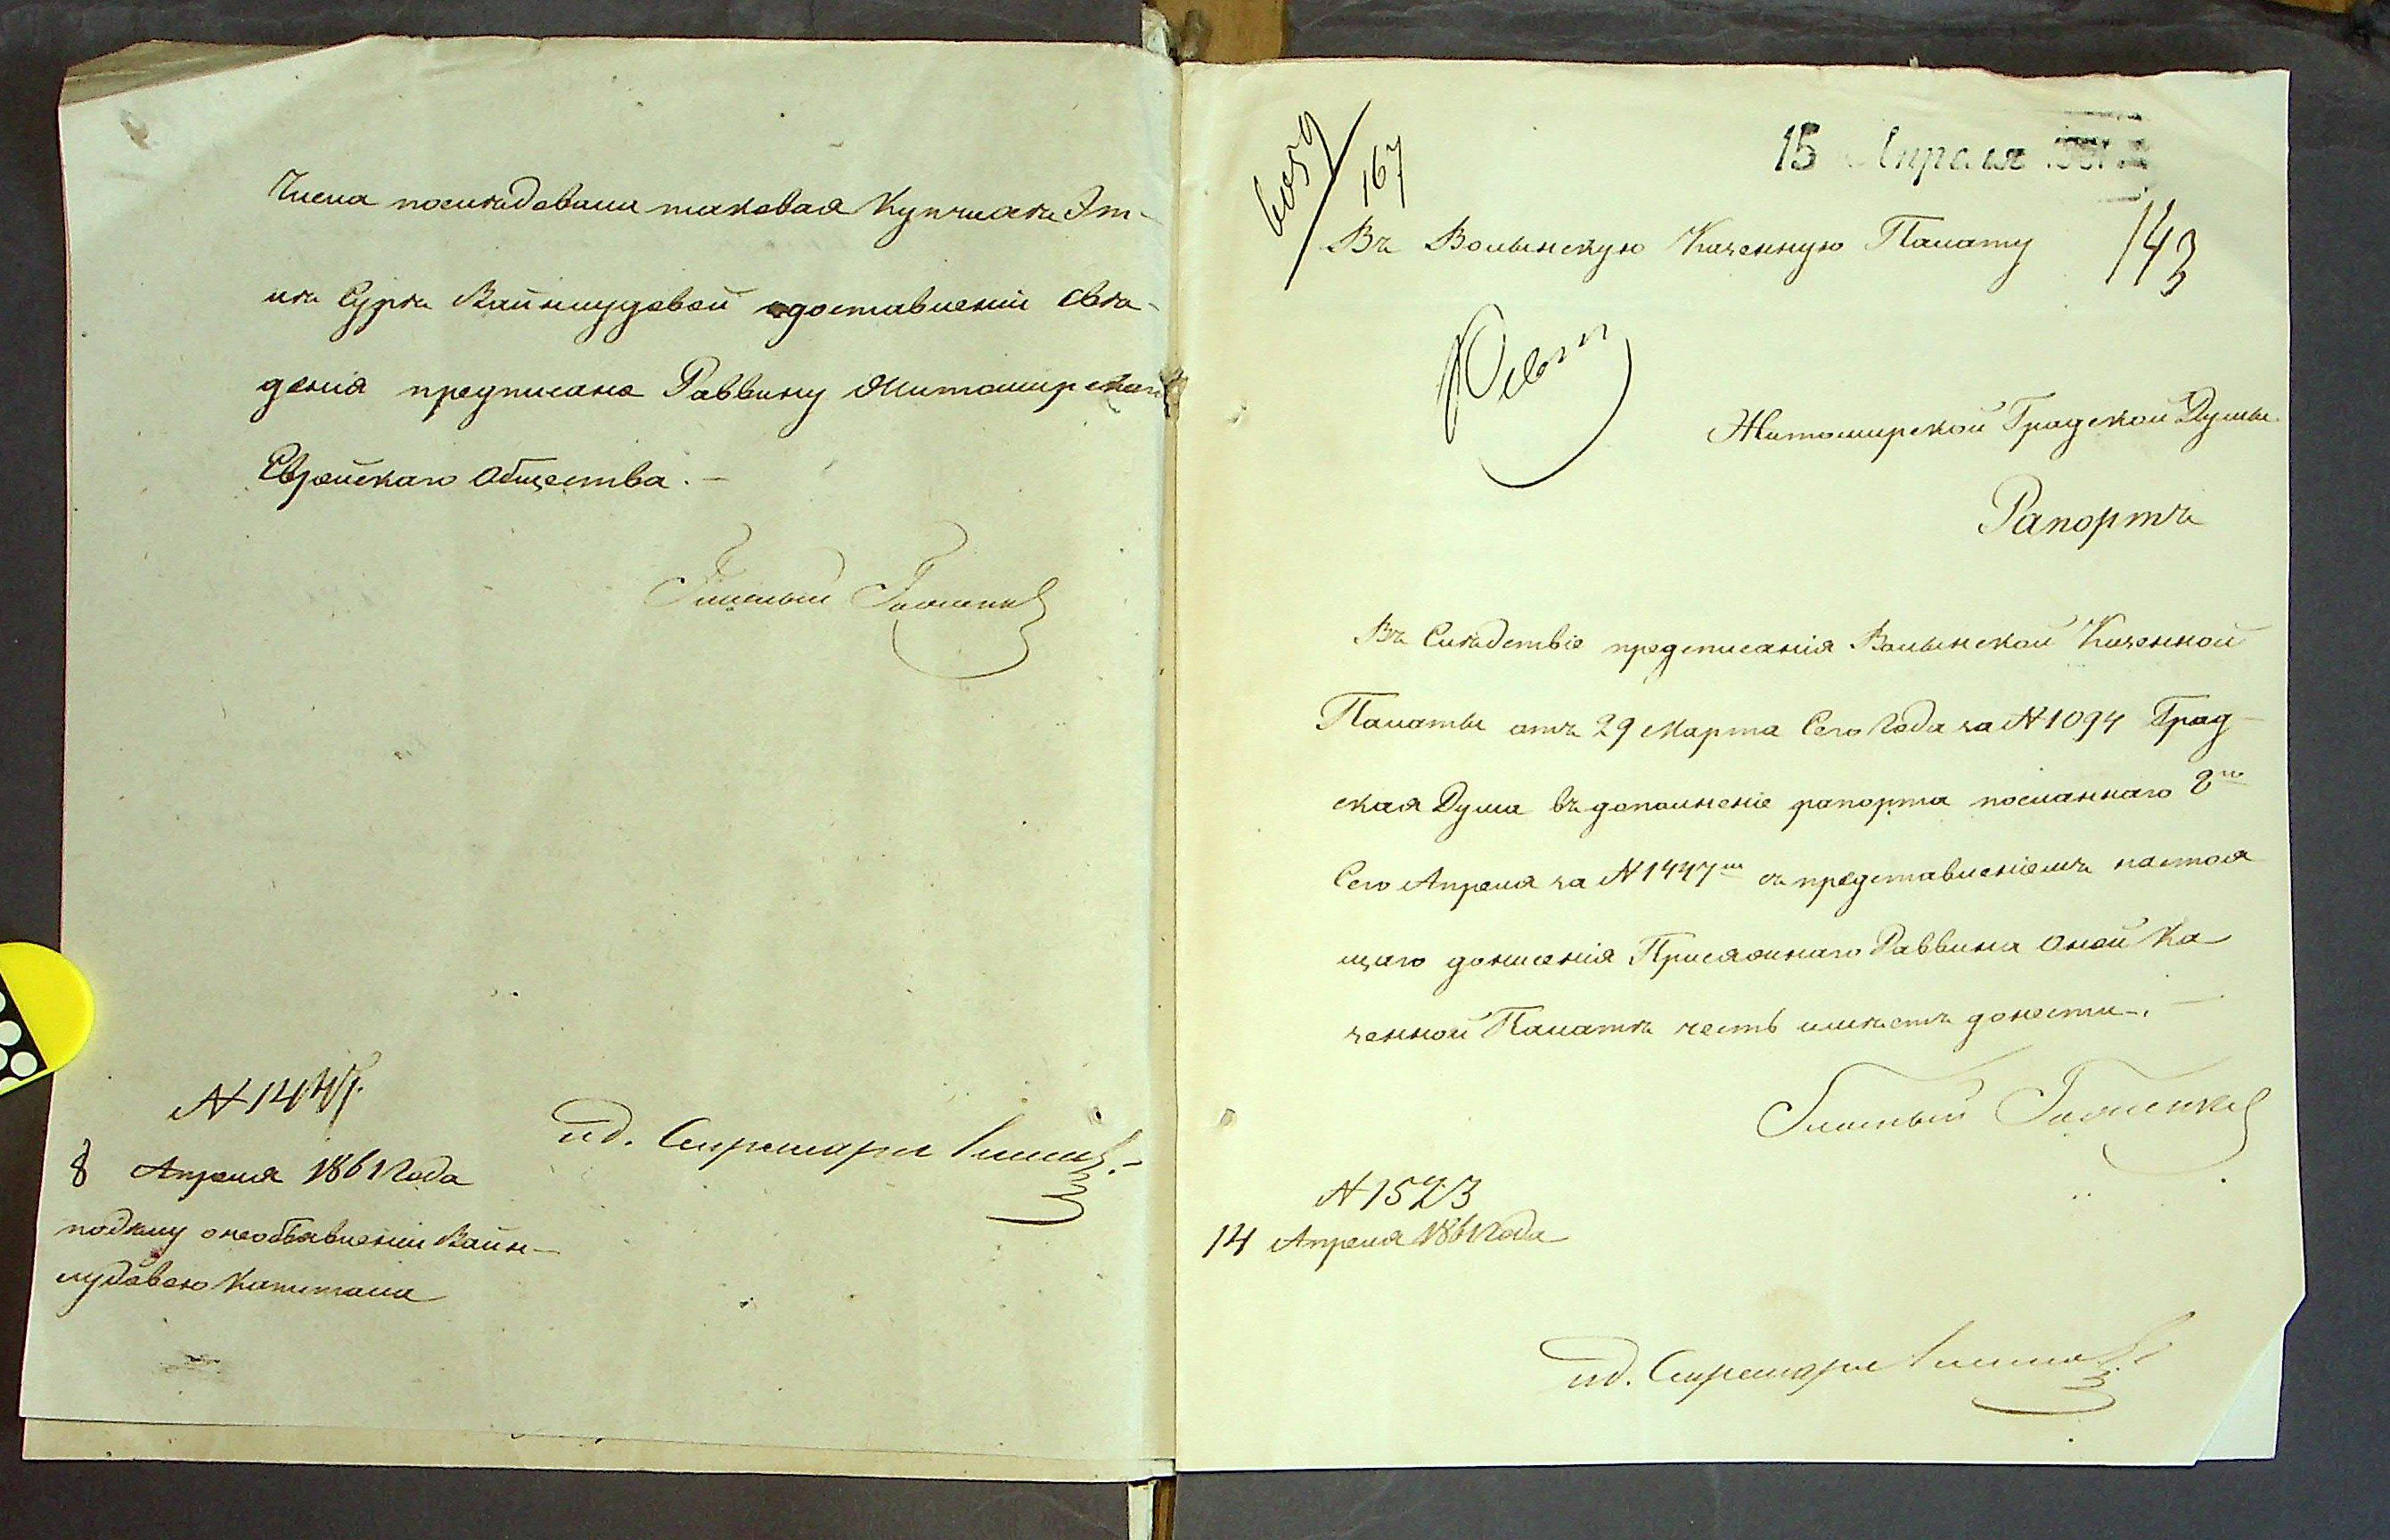 Числа последовала таковая Купчихѣ Эт-
лѣ Суръ Вайншудовой одоставленіи свѣ-
денія предписано Раввину Житомирскаго
Еврейскаго Общества. —
Гласный
N 1447.
8 Апреля 1861 Года
подѣлу онеобъявленіи Вайн-
шудовою Капитала
ид. Сикретаря
6059/167
15 Апреля 1861
143
Въ Волынскую Казенную Палату
Житомирской Градской Думы
Рапортъ
Въ Слѣдствіе предписанія Волынской Казенной
Палаты отъ 29 Марта Сего Года за N 1094 Град-
ская Дума въ дополненіе рапорта посланнаго 8го
Сего Апреля за N 1447м съ представленіемъ настоя
щаго донисенія Присяжнаго Раввина оной Ка
зенной Палатѣ честь имѣетъ донести. —
Гласный
N 1523
14 Апреля 1861 Года
ид. Сикретаря